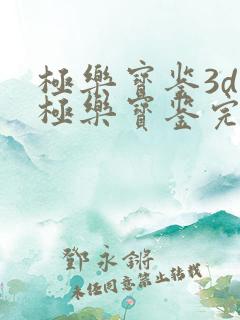 極樂寶鉴3d
極樂寶鉴完
鄧永鏘
未经同意禁止转载